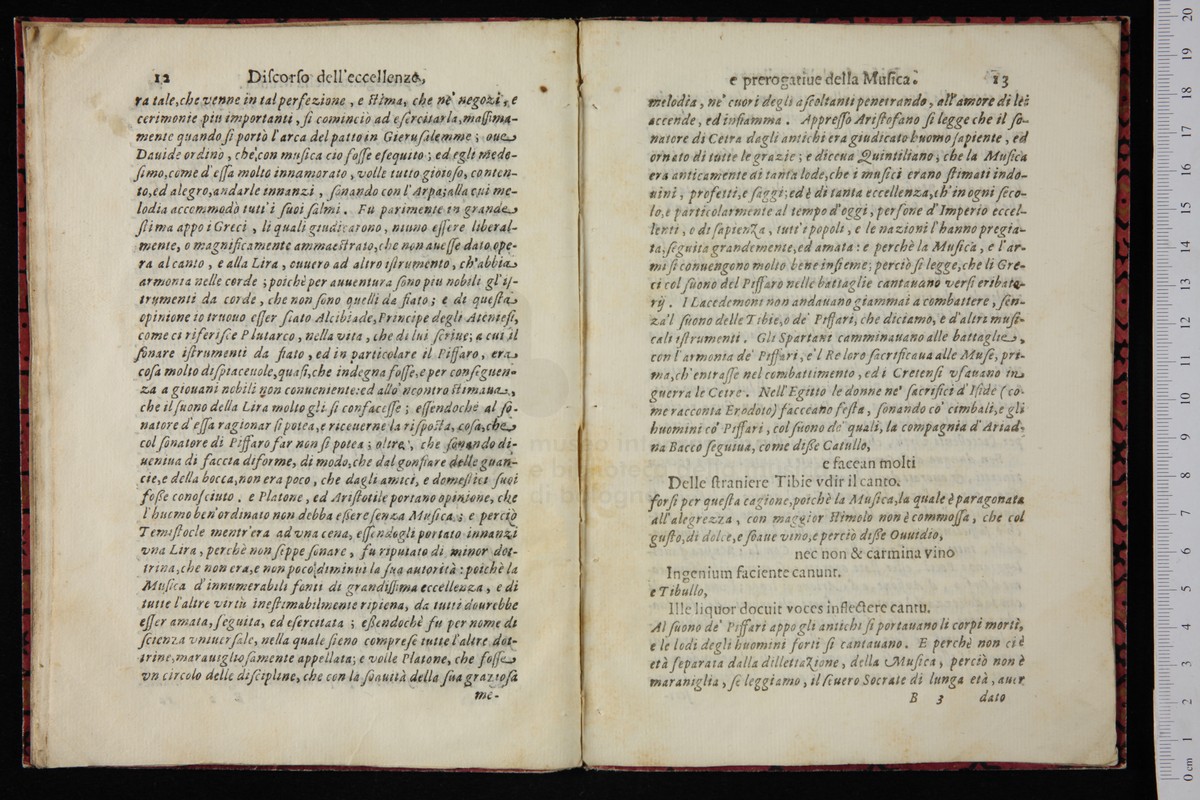 12 Diſcorſo dell'eccellenze,
ra tale,che venne in tal perfezione, e ſtima, che ne' negozi, e
cerimonie piu importanti, ſi cominciò ad eſercitarla,maſſima-
mente quando ſi portò l'arca del patto in Gieruſalemme; oue
Dauide ordinò, che,con muſica ciò foſſe eſequito; ed egli mede-
ſimo,come d'eſſa molto innamorato, volle tutto gioioſo, conten-
to,ed alegro,andarle innanzi, ſonando con l'Arpa;alla cui me-
lodia accommodò tutti i ſuoi ſalmi. Fu parimente in grande
ſtima appo i Greci, li quali giudicarono, niuno eſſere liberal-
mente, o magnificamente ammaeſtrato,che non aueſſe dato ope-
ra al canto, e alla Lira, ouuero ad altro iſtrumento, ch'abbia
armonia nelle corde; poichè per auuentura ſono piu nobili gl'iſ-
trumenti da corde, che non ſono quelli da fiato; e di queſta
opinione io truouo eſſer ſtato Alcibiade,Principe degli Atenieſi,
come ci riferiſce Plutarco, nella vita, che di lui ſcriue; a cui il
ſonare iſtrumenti da fiato, ed in particolare il Piffaro, era
coſa molto diſpiaceuole,quaſi,che indegna foſſe,e per conſeguen-
za a giouani nobili non conueniente:ed allo'ncontro ſtimaua,
che il ſuono della Lira molto gli ſi confaceſſe; eſſendochè al ſo-
natore d'eſſa ragionar ſi potea,e riceuerne la riſpoſta, coſa,che
col ſonatore di Piffaro far non ſi potea; oltre, che ſonando di-
ueniua di faccia diforme, di modo,che dal gonfiare delle guan-
cie,e della bocca,non era poco, che dagli amici, e domeſtici ſuoi
foſſe conoſciuto. e Platone, ed Ariſtotile portano opinione, che
l'huomo ben'ordinato non debba eſſere ſenza Muſica; e perciò
Temiſtocle mentr'era ad vna cena, eſſendogli portato innanzi
vna Lira, perchè non ſeppe ſonare, fu riputato di minor dot-
trina,che non era,e non poco diminuì la ſua autorità: poichè la
Muſica d'innumerabili fonti di grandiſſima eccellenza, e di
tutte l'altre virtù ineſtimabilmente ripiena, da tutti dourebbe
eſſer amata, ſeguita, ed eſercitata; eſſendochè fu per nome di
ſcienza vniuerſale, nella quale ſieno compreſe tutte l'altre dot-
trine,marauiglioſamente appellata; e volle Platone, che foſſe
vn circolo delle diſcipline, che con la ſoauità della ſua grazioſa
me-
e prerogatiue della Muſica. 13
melodia, ne' cuori degli aſcoltanti penetrando, all'amore di lei
accende, ed infiamma. Appreſſo Ariſtofano ſi legge che il ſo-
natore di Cetra dagli antichi era giudicato huomo ſapiente, ed
ornato di tutte le grazie; e diceua Quintiliano, che la Muſica
era anticamente di tanta lode,che i muſici erano ſtimati indo-
uini, profetti,e ſaggi;ed è di tanta eccellenza,ch'in ogni ſeco-
lo,e particolarmente al tempo d'oggi, perſone d'Imperio eccel-
lenti, o di ſapienza, tutt'i popoli, e le nazioni l'hanno pregia-
ta,ſeguita grandemente,ed amata: e perchè la Muſica, e l'ar-
mi ſi conuengono molto bene inſieme; perciò ſi legge,che li Gre-
ci col ſuono del Piffaro nelle battaglie cantauano verſi eribato-
rij. I Lacedemoni non andauano giammai a combattere, ſen-
za'l ſuono delle Tibie,o de' Piffari, che diciamo, e d'altri muſi-
cali iſtrumenti. Gli Spartani camminauano alle battaglie,
con l'armonia de' Piffari, e'l Re loro ſacrificaua alle Muſe, pri-
ma,ch'entraſſe nel combattimento, ed i Cretenſi vſauano in
guerra le Cetre. Nell'Egitto le donne ne' ſacrifici d'Iſide (co-
me racconta Erodoto) facceano feſta, ſonando co' cimbali,e gli
huomini co' Piffari, col ſuono de' quali, la compagnia d'Ariad-
na Bacco ſeguiua, come diſſe Catullo,
e faccan molti
Delle ſtraniere Tibie vdir il canto.
forſi per queſta cagione,poichè la Muſica,la quale è paragonata
all'alegrezza, con maggior ſtimolo non è commoſſa, che col
guſto,di dolce,e ſoaue vino,e perciò diſſe Ouuidio,
nec non & carmina vino
Ingenium faciente canunt.
e Tibullo,
Ille liquor docuit voces inflectere cantu.
Al ſuono de' Piffari appo gli antichi ſi portauano li corpi morti,
e le lodi degli huomini forti ſi cantauano. E perchè non ci è
età ſeparata dalla dillettazione, della Muſica, perciò non è
marauiglia, ſe leggiamo, il ſeuero Socrate di lunga età, auer
B 3 dato